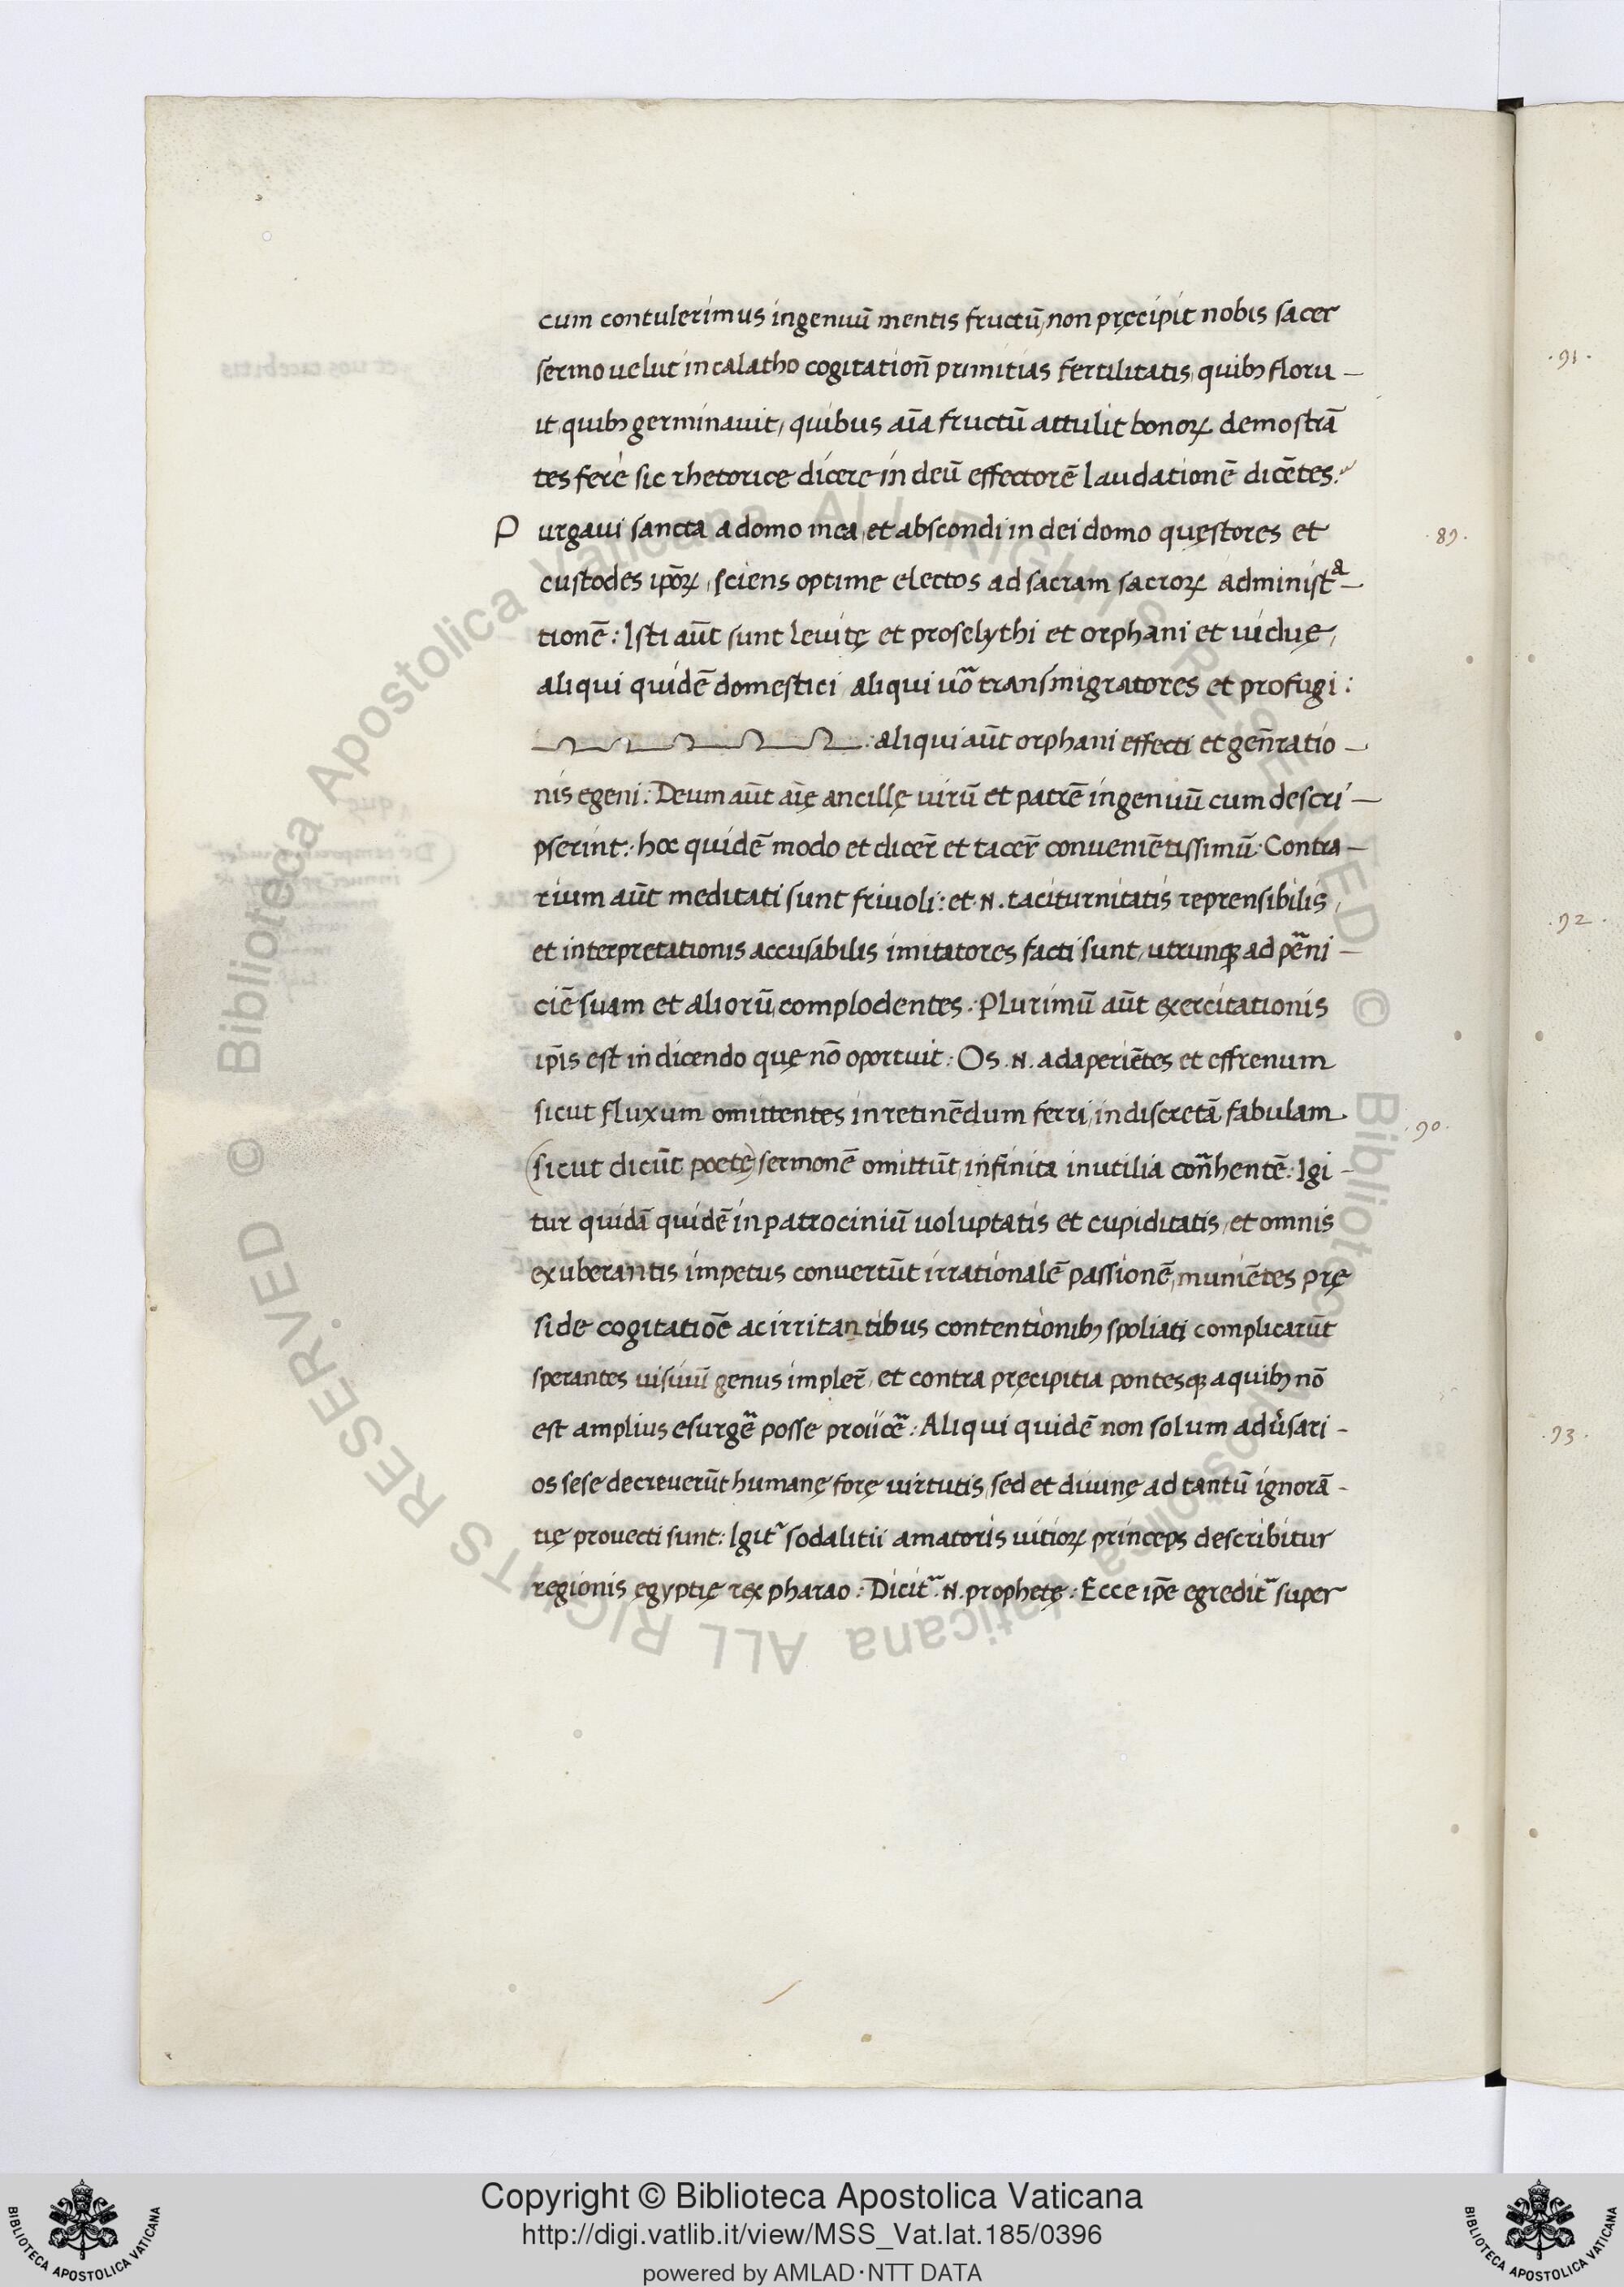 cum contulerimus ingenuũ mentis fructũ, non pręcipit nobis sacer
sermo uelut in calatho cogitationñ primitias fertilitatis, quibꝫ floru –
it, quibꝫ germinauit, quibus aĩa fructũ attulit bonoꝝ demostrã
tes ferè sic rhetorice dicere in deũ effectorẽ laudationẽ dicẽtes:
Purgaui sancta a domo mea, et abscondi in dei domo quęstores et
custodes ip̃oꝝ, sciens optime electos ad sacram sacroꝝ administᵃ –
tionẽ: Isti aũt sunt leuitę et proselythi et orphani et uiduę,
aliqui quidẽ domestici aliqui uõ transmigratores et profugi:
: aliqui aũt orphani effecti et geñratio –
nis egeni: Deum aũt aĩę ancillę uirũ et patrẽ ingenuũ cum descri –
pserint: hoc quidẽ modo et dicer̃ et tacer̃ conueniẽtissimũ. Contra –
rium aũt meditati sunt friuoli: et .N. taciturnitatis reprensibilis,
et interpretationis accusabilis imitatores facti sunt, utrunqꝫ ad p̃eni –
ciẽ suam et aliorũ complodentes. Plurimũ aũt exercitationis
ip̃is est in dicendo quę nõ oportuit: Os .N. adaperiẽtes et effrenum
sicut fluxum omittentes in retinẽdum ferri, indiscretã fabulam
(sicut dicũt poetę) sermonẽ omittũt infinita inutilia coñhentẽ: Igi –
tur quidã quidẽ in patrociniũ uoluptatis et cupiditatis, et omnis
exuberantis impetus conuertũt irrationalẽ passionẽ, muniẽtes prę
side cogitatiõe ac irritantibus contentionibꝫ spoliati complicarũt
sperantes uisiuũ genus impler̃, et contra pręcipitia pontesqꝫ a quibꝫ nõ
est amplius esurgẽ posse proiicẽ: Aliqui quidẽ non solum adũsari –
os sese decreuerũt humanę forę uirtutis, sed et diuinę ad tantũ ignorã –
tię prouecti sunt: Igit̃ sodalitii amatoris uitioꝝ princeps describitur
regionis egyptię rex pharao: Dicit̃ .N. prophetę: Ecce ip̃e egredit̃ super
.89.
.90.
.91.
.92.
.93.
Copyright © Biblioteca Apostolica Vaticana
http://digi.vatlib.it/view/MSS_Vat.lat.185/0396
powered by AMLAD·NTT DATA
BIBLIOTECA APOSTOLICA VATICANA
BIBLIOTECA APOSTOLICA VATICANA
© Biblioteca Apostolica Vaticana ALL RIGHTS RESERVED © Biblioteca Apostolica Vaticana ALL RIGHTS RESERVED